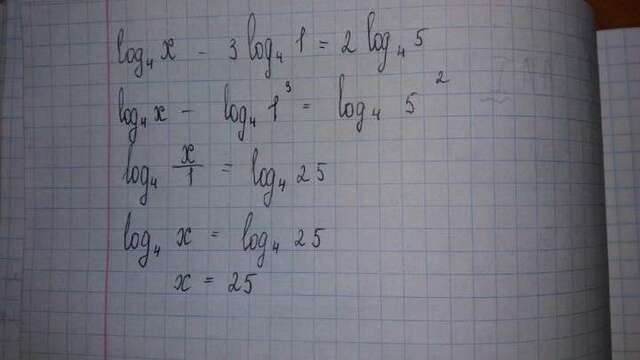 log₄ x - 3 log₄ 1 = 2 log₄ 5
log₄ x - log₄ 1³ = log₄ 5²
log₄ x/1 = log₄ 25
log₄ x = log₄ 25
x = 25